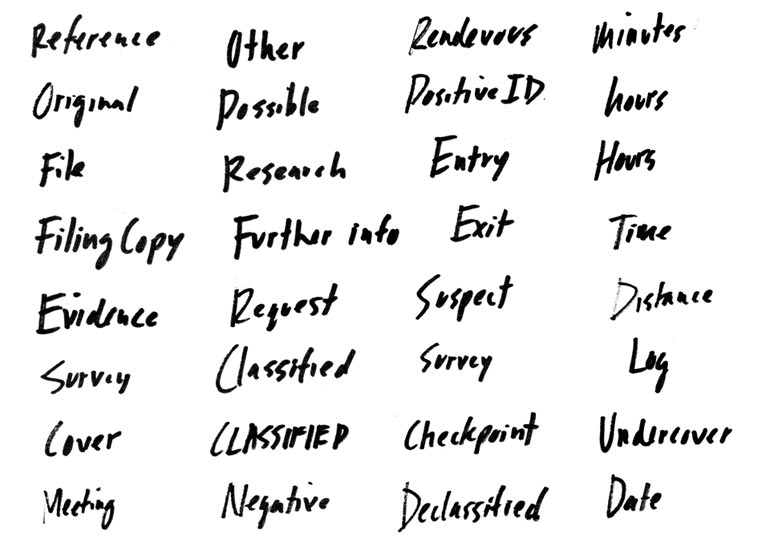 Reference Other Rendevous minutes
Original Possible Positive ID hours
File Research Entry Hours
Filing Copy Further info Exit Time
Evidence Request Suspect Distance
Survey Classified Survey Log
Cover CLASSIFIED Checkpoint Undercover
Meeting Negative Declassified Date